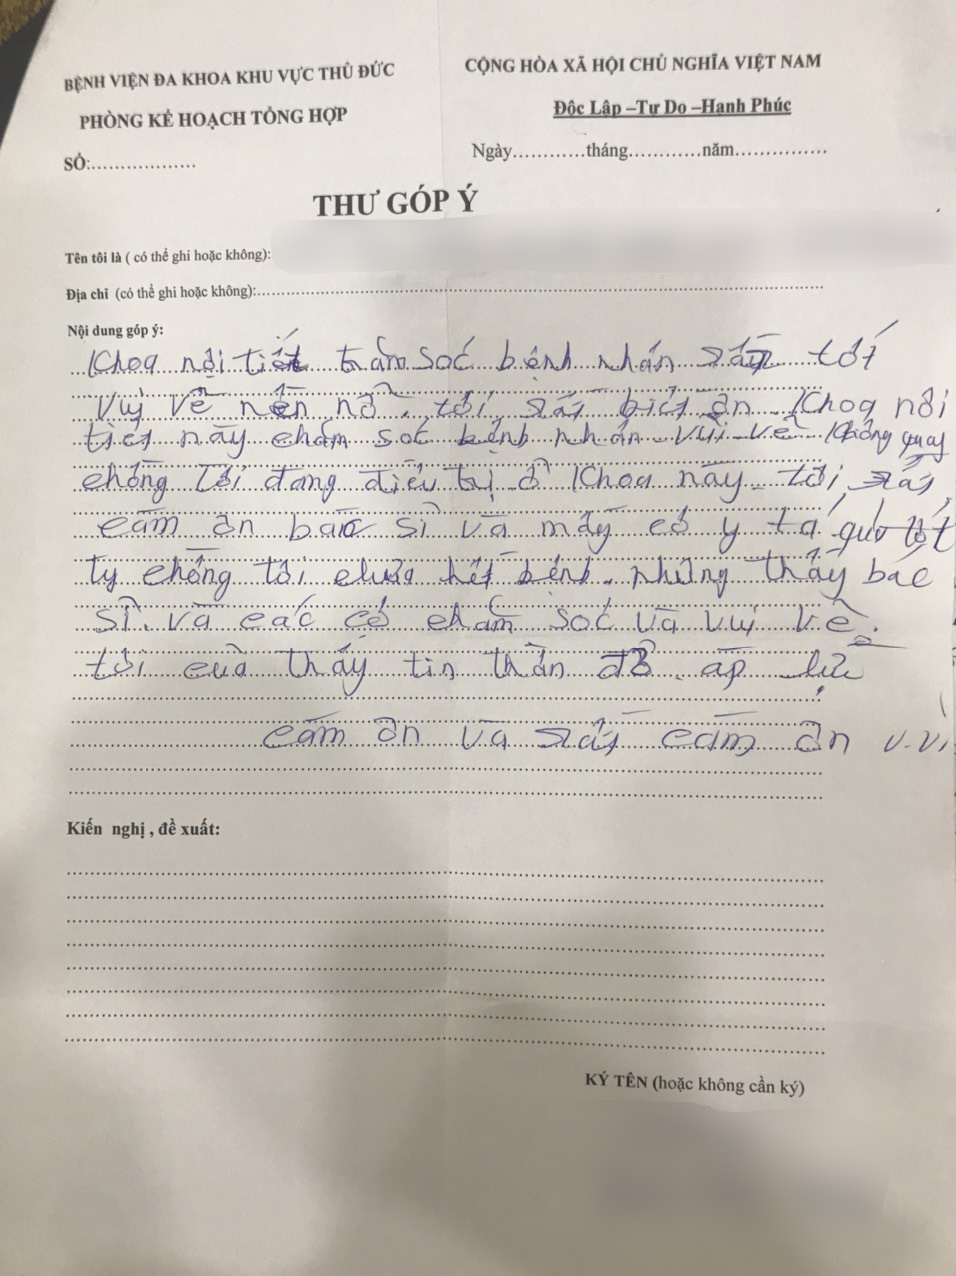 BỆNH VIỆN ĐA KHOA KHU VỰC THỦ ĐỨC
CỘNG HÒA XÃ HỘI CHỦ NGHĨA VIỆT NAM
PHÒNG KẾ HOẠCH TỔNG HỢP
Độc Lập –Tự Do –Hạnh Phúc
SỐ:..................
Ngày............tháng............năm...............
THƯ GÓP Ý
Tên tôi là ( có thể ghi hoặc không):
Địa chỉ (có thể ghi hoặc không):
Nội dung góp ý:
Khoa nội tiết trăm soc bệnh nhân rất tốt
Vuị vẽ nền nỡ. tôi rất biết ơn Khoa nội
tiết này chăm soc bệnh nhân vui vẽ không quay
chồng tôi đang điều trị ở Khoa này tôi rất
cám ơn bac sỉ và mấy cô y tá quá tốt
tỵ chồng tôi chưa hết bệnh. nhưng thấy bac
sỉ và các cô chăm soc và vuị vẽ.
tôi củo thấy tin thần đở áp lực
cám ơn và rất cám ơn v.v
Kiến nghị , đề xuất:
KÝ TÊN (hoặc không cần ký)